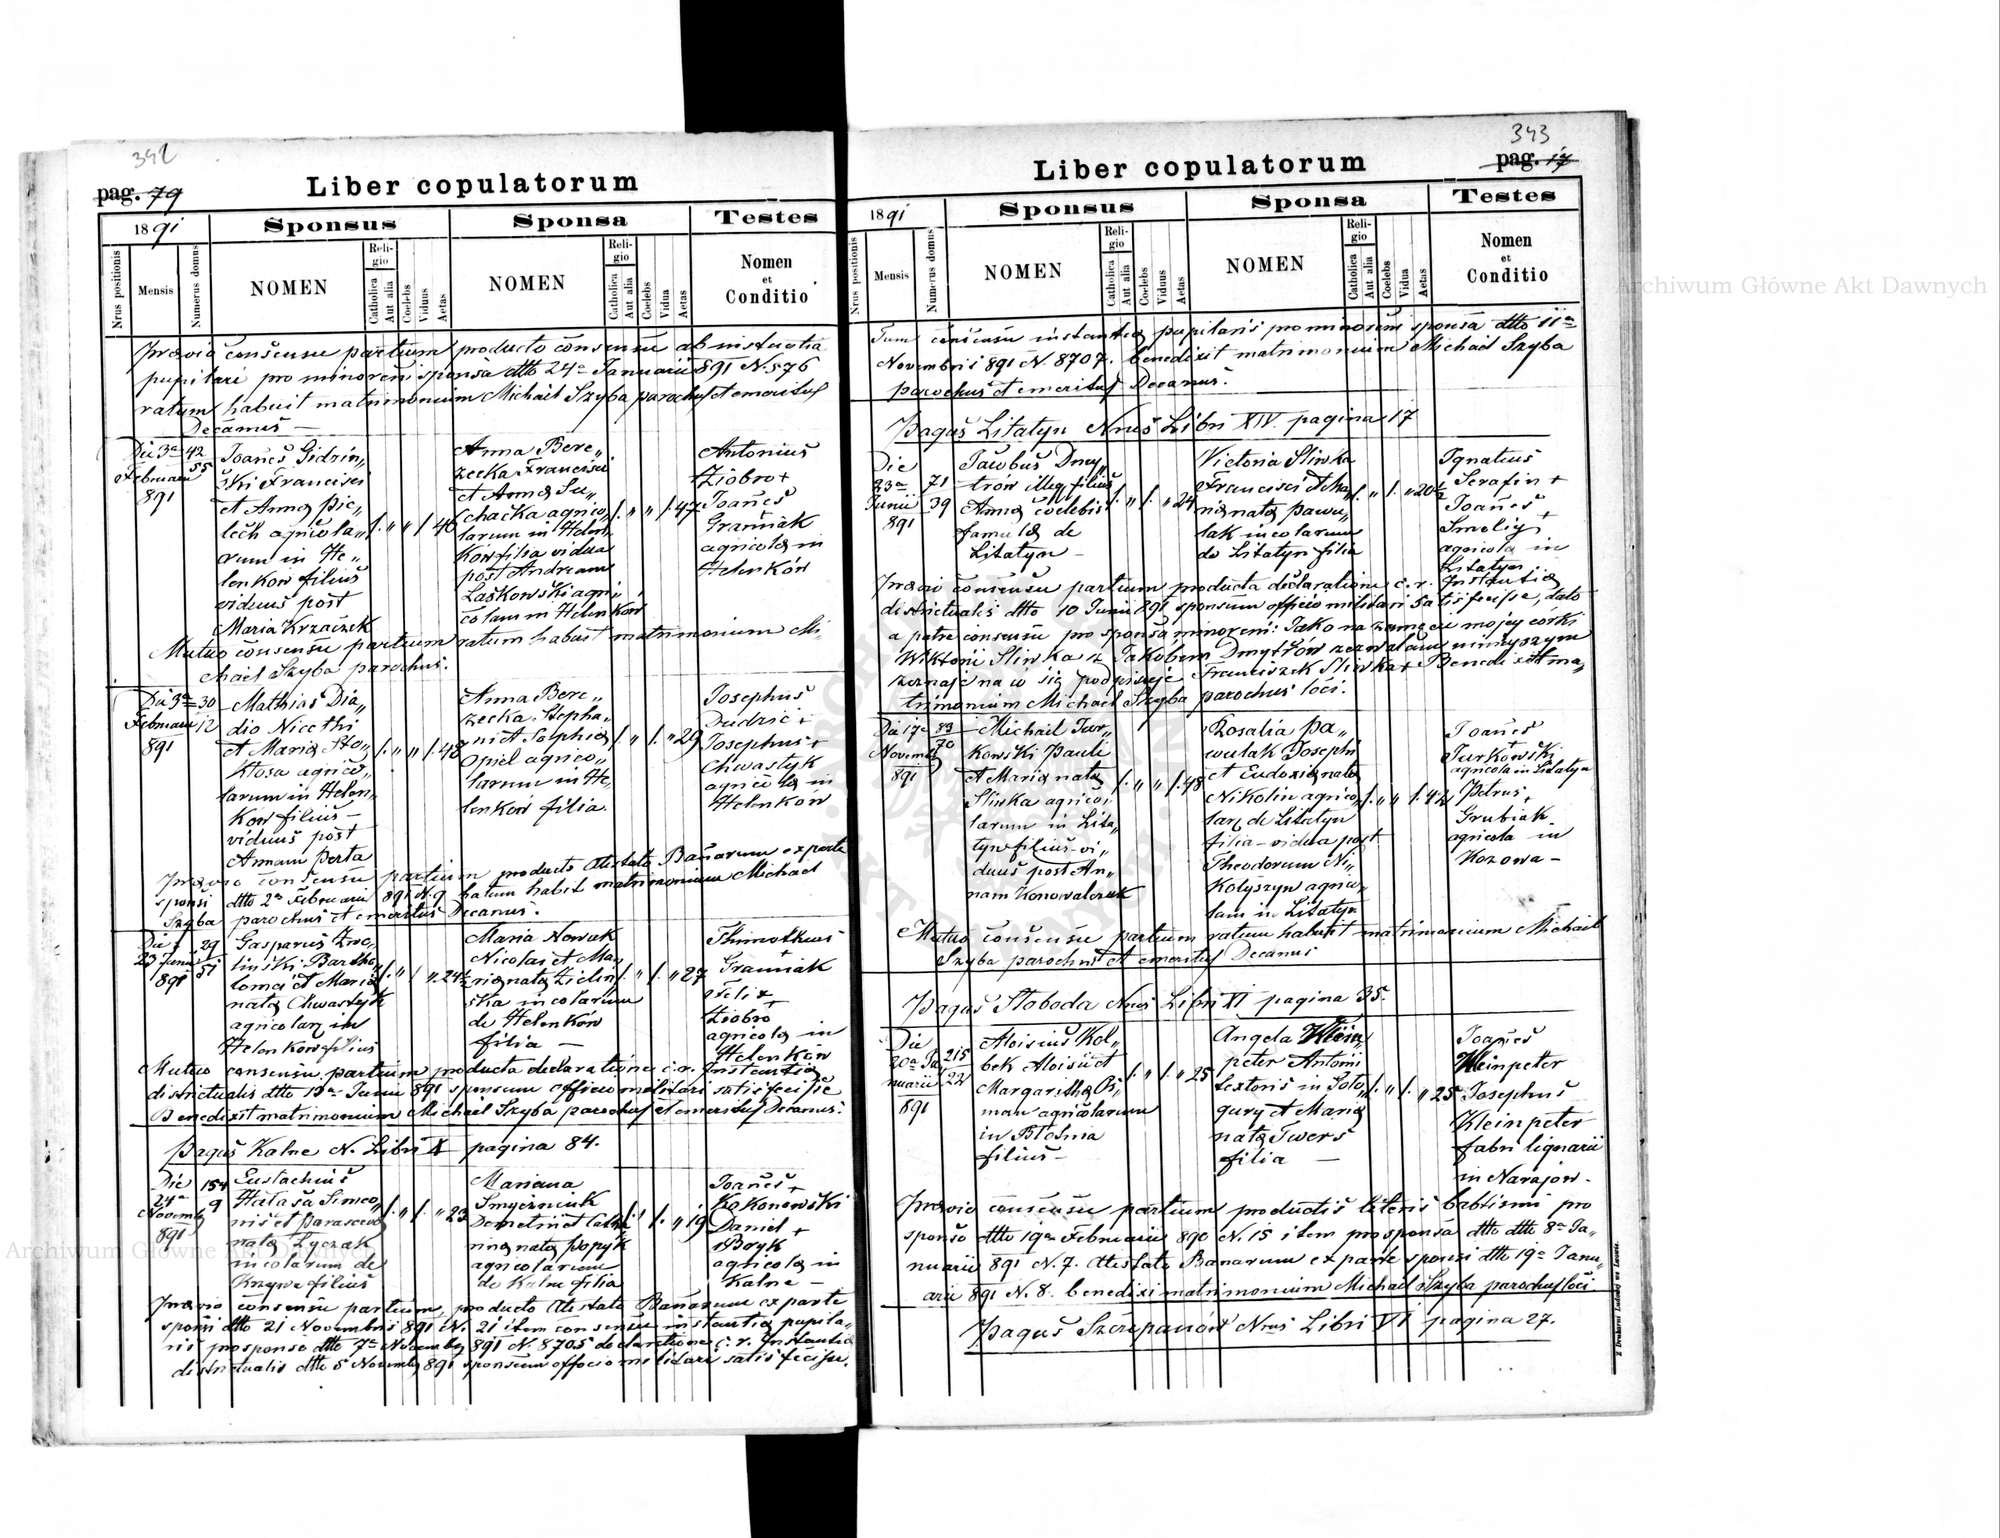 342
pag. 79
Liber copulatorum
1891
Sponsus
Sponsa
Testes
Nrus positionis
Mensis
Numerus domus
NOMEN
Religio
Catholica
Aut alia
Coelebs
Viduus
Aetas
NOMEN
Religio
Catholica
Aut alia
Coelebs
Vidua
Aetas
Nomen
et
Conditio
Praevio consensu partium producto consensu ab instantia
pupilari pro minoreni sponsa dtto 24a Januarii 891 N. 576
ratum habuit matrimonium Michael Szyba parochus et emeritus
Decanus —
Die 3a
Februarii
891
42
55
Joanes Gidzin„
ski Francisci
et Anna Pie„
lech agricola„
rum in He„
lenkow filius
viduus post
Maria Krzaczek
/. „ „ /. 46
Anna Bere„
zecka Francisci
et Anna Su„
chačka agrico„
larum in Helen„
kow filia vidua
post Andream
Laskowski agri„
colam in Helenkow
/. „ „ /. 47
Antonius
Ziobro +
Joanes
+
Graniak
agricola in
Helenków
Mutuo consensu partium ratum habuit matrimonium Mi
chael Szyba parochus.
Die 3a
Februarii
891
30
12
Mathias Dia„
dio Nicethi
et Maria Sto„
klosa agrico„
larum in Helen„
kow filius —
viduus post
Annam Perta
/. „ „ /. 48
Anna Bere„
zecka Stepha„
ni et Sophia
Opiel agrico„
larum in He„
lenkow filia.
/. „ /. „ 29
Josephus
Dudzic +
Josephus +
Chwastyk
agricola in
Helenków
Praevio consensu partium producto Atestato Banarum ex parte
sponsi dtto 2a Februarii 891 N. 9 ratum habuit matrimonium Michael
Szyba parochus et emeritus Decanus.
Die
23 Junii
891
29
51
Gasparus Zie„
linski Bartho„
lomei et Maria
nata Chwastyk
agricolar in
Helenkow filius
/. „ / „ 24½
Maria Nowak
Nicolai et Ma„
ria nata Zielin„
ska incolarum
de Helenków
filia —
/. „ /. „ 27
Thimotheus
+
Graniak
Felix
+
Ziobro
agricola in
Helenków
Mutuo consensu partium producta declaratione c. r. Instantia
districtualis dtto Junii 891 sponsum officio militari satis fecisse
Benedixit matrimonium Michael Szyba parochus et emeritus Decanus.
Pagus Kalne N. Libri X pagina 84.
Die
24a
Novembr
891
154
9
Eustachius
Hałasa Simeo„
nis et Parasceva
nata Łyczak
incolarum de
Krzywe filius
/. „ /. „ 23
Mariana
Smyczniuk
Demetrii et Catha„
rina nata Popyk
agricolarum
de Kalne filia
/. „ /. „ 19
Joanes +
Kokonowski
Daniel +
Boyk
agricola in
Kalne —
Praevio consensu partium, producto Atestato Banarum ex parte
sponsi dtto 21 Novembris 891 N. 21 item consensu instantia pupila„
ris pro sponsa dtto 7a Novembr 891 N. 8705 declaratione c. r. Instantia
districtualis dtto 5 Novembr 891 sponsum officio militari satis fecisse.
343
pag. 17
Liber copulatorum
1891
Sponsus
Sponsa
Testes
Nrus positionis
Mensis
Numerus domus
NOMEN
Religio
Catholica
Aut alia
Coelebs
Viduus
Aetas
NOMEN
Religio
Catholica
Aut alia
Coelebs
Vidua
Aetas
Nomen
et
Conditio
Tum consensu instantia pupilaris pro minoreni sponsa dtto 11a
Novembris 891 N. 8707. benedixit matrimonium Michael Szyba
parochus et emeritus Decanus.
Pagus Litatyn Nrus Libri XIV. pagina 17
Die
23a
Junii
891
71
39
Jacobus Dmy„
trów illeg filius
Anna coelebis
famula de
Litatyn —
/. „ /. „ 24
Victoria Sliwka
Francisci et Ma„
ria nata Pawu„
lak incolarum
de Litatyn filia
/. „ /. „ 20½
Ignatius
Serafin +
Joanes
+
Smoliy
agricola in
Litatyn
Praevio consensu partium producta declaratione c. r. Instantia
districtualis dtto 10 Junii 891 sponsum officio militari satis fecisse, dato
a patre consensu pro sponsa minoreni: Jako na zamęcie mojej córki
Wiktorii Sliwka z Jakobem Dmytrów zezwalam niniejszym
zeznaję na co się podpisuję Franciszek Sliwka + Benedixit ma„
trimonium Michael Szyba parochus loci.
Die 17a
Novembr
891
89
70
Michael Tur„
kowski Pauli
et Maria nata
Sliwka agrico„
larum in Lita„
tyn filius vi„
duus post An„
nam Konowalczuk
/. „ „ /. 48
Rosalia Pa„
wulak Josephi
et Eudoxia nata
Nikolin agrico„
lar de Litatyn
filia — vidua post
Theodorum Ni„
kolyszyn agrico„
lam in Litatyn
/. „ „ /. 42
Joanes
+
Turkowski
agricola in Litatyn
Petrus
+
Grubiak
agricola in
Kozowa —
Mutuo consensu partium ratum habuit matrimonium Michael
Szyba parochus et emeritus Decanus
Pagus Sloboda Nrus Libri XI pagina 35.
Die
20a Ja„
nuarii
891
215
22
Aloisius Kol„
bek Aloisii et
Margaritha Os„
man agricolarum
in Blosnia
filius —
/. „ /. „ 25
Angela Klein
peter Antoni
textoris in Poto„
qury et Maria
nata Twers
filia —
/. „ /. „ 25
Joanes
Kleinpeter
Josephus
Kleinpeter
fabri lignarii
in Narajow.
Praevio consensu partium productis literis babtismi pro
sponso dtto 19a Februarii 890 N. 15 item pro sponsa dtto dtto 8a Ja„
nuarii 891 N. 7. Atestato Banarum ex parte sponsi dtto 19a Janu„
arii 891 N. 8. benedixi matrimonium Michael Szyba parochus loci
Pagus Szczepanów Nrus Libri VI pagina 27.
Z Drukarni Ludowej we Lwowie.
Archiwum Główne Akt Dawnych
Archiwum Główne Akt Dawnych